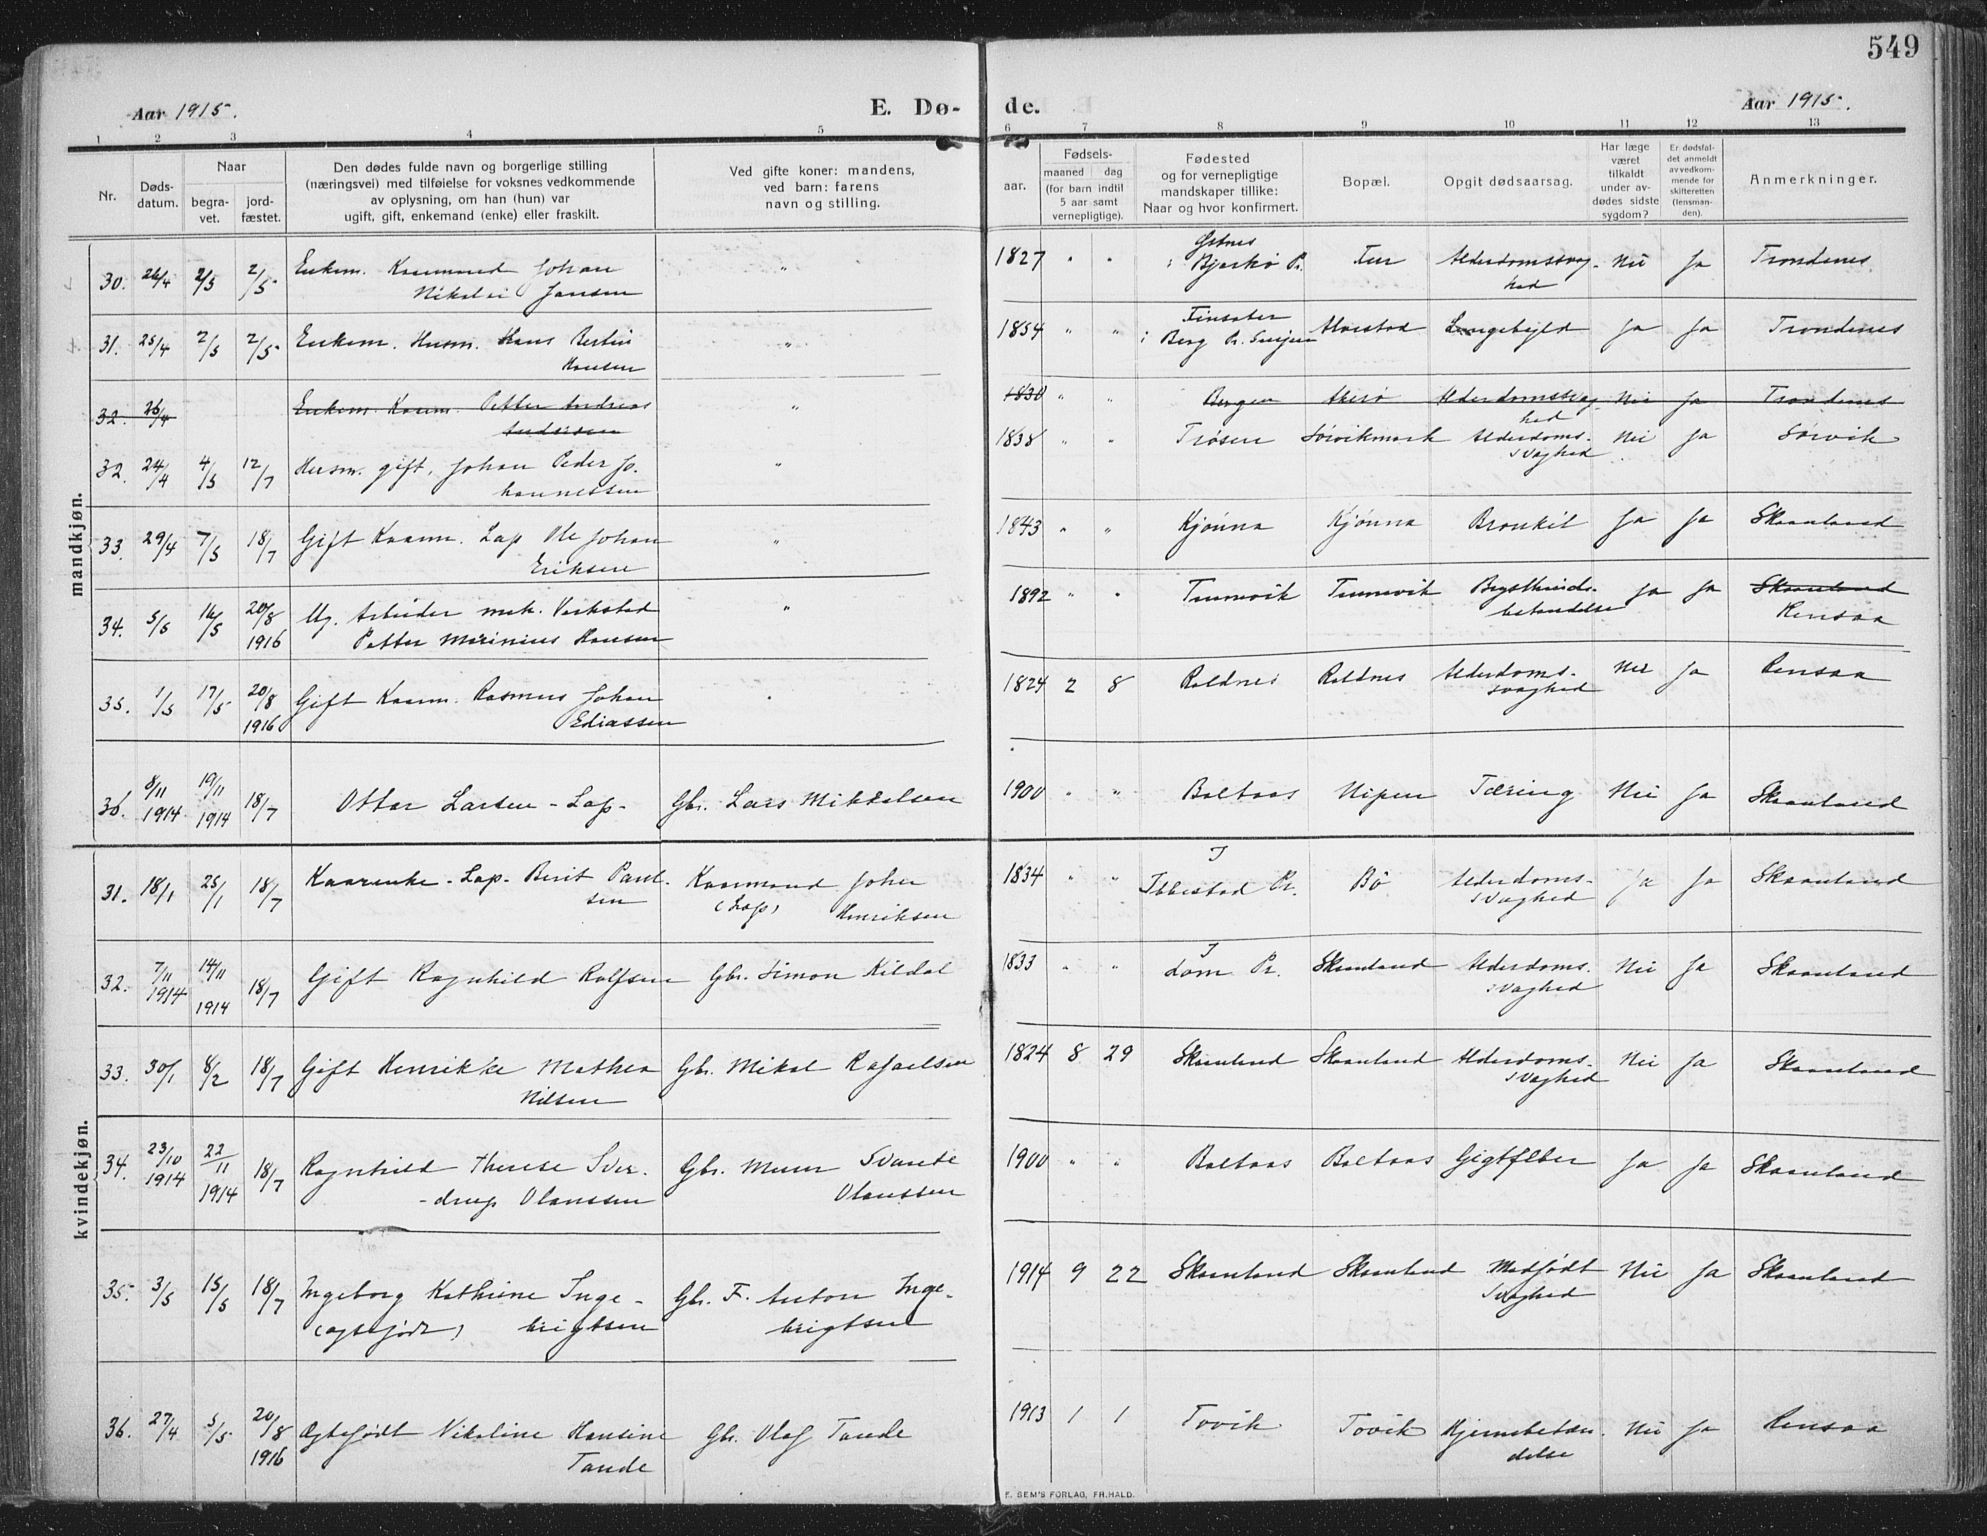 549
Aar 1915.
E. Dø-
de.
Aar 1915.
1 2 3 4 5 6 7 8 9 10 11 12 13
Nr.
Døds-
datum.
Naar
begra-
vet.
jord-
fæstet.
Den dødes fulde navn og borgerlige stilling
(næringsvei) med tilføielse for voksnes vedkommende
av oplysning, om han (hun) var
ugift, gift, enkemand (enke) eller fraskilt.
Ved gifte koner: mandens,
ved barn: farens
navn og stilling.
Fødsels-
aar.
maaned dag
(for barn indtil
5 aar samt
vernepligtige).
Fødested
og for vernepligtige
mandskaper tillike:
Naar og hvor konfirmert.
Bopæl.
Opgit dødsaarsag.
Har læge
været
tilkaldt
under av-
dødes sidste
sygdom?
Er dødsfal-
det anmeldt
av vedkom-
mende for
skifteretten
(lensman-
den).
Anmerkninger.
mandkjøn.
30. 26/4 2/5 2/5 Enkem. Kaarmand Johan " 1827 " " i Bjarkø Pr. Alderdomssvag- Nei Ja Trondenes
Nikolai Jansen hed
31. 25/4 2/5 2/5 Enkem. Husm. Hans Bertin " 1854 " " i Berg Pr. Senjen Alvestad Lungebyld Ja Ja Trondenes
Hansen
32. 26/4 Enkem. Kaarm. Petter Andreas " 1830 " " Bergen Akerø Alderdomssvag- Nei Ja Trondenes
Andersen hed
32. 24/4 4/5 12/7 Husm. gift, Johan Peder Jo- " 1838 " " Trøsen Sørvikmark Alderdoms- Nei Ja Sørvik
hannessen svaghed
33. 29/4 7/5 18/7 Gift Kaarm. Lap Ole Johan " 1843 " " Kjønna Kjønna Bronkit Ja Ja Skaanland
Eriksen
34. 5/5 16/5 20/8 Ug. Arbeider mek. Verksted " 1892 " " Tennevik Tennevik Brysthinde- Ja Ja Skaanland
1916 Petter Marinius Hansen betændelse Rensaa
35. 1/5 17/5 20/8 Gift Kaarm. Rasmus Johan " 1824 2 8 Roldnes Roldnes Alderdoms- Nei Ja Rensaa
1916 Ediassen svaghed
36. 8/11 1914 19/11 1914 18/7 Ottar Larsen - Lap - Gbr. Lars Mikkelsen 1900 " " Boltaas Nipen Tæring Nei Ja Skaanland
kvindekjøn.
31. 18/1 25/1 18/7 Kaarenke - Lap - Berit Paul- Kaarmand Johan 1834 " " I Ibbestad Pr. Bø Alderdoms- Ja Ja Skaanland
sen (Lap) Henriksen svaghed
32. 7/11 1914 14/11 1914 18/7 Gift Ragnhild Rolfsen Gbr. Simon Kildal 1833 " " I Lom Pr. Skaanland Alderdoms- Nei Ja Skaanland
svaghed
33. 30/1 8/2 18/7 Gift Henrikke Mathea Gbr. Mikal Rafaelsen 1824 8 29 Skaanland Skaanland Alderdoms- Nei Ja Skaanland
Nilsen svaghed
34. 23/10 1914 22/11 1914 18/7 Ragnhild Therese Sver- Gbr. Murer Svante 1900 " " Boltaas Boltaas Gigtfeber Ja Ja Skaanland
-drup Olaussen Olaussen
35. 3/5 15/5 18/7 Ingeborg Kathrine Inge- Gbr. F. Anton Inge- 1914 9 22 Skaanland Skaanland Medfødt Nei Ja Skaanland
(ægtefødt) brigtsen brigtsen Svaghed
36. 27/4 5/5 20/8 Ægtefødt Nikoline Hansine Gbr. Olaf Tande 1913 1 1 Tovik Tovik Hjernebetæn- Nei Ja Rensaa
1916 Tande delse
E. SEM'S FORLAG, FR.HALD.